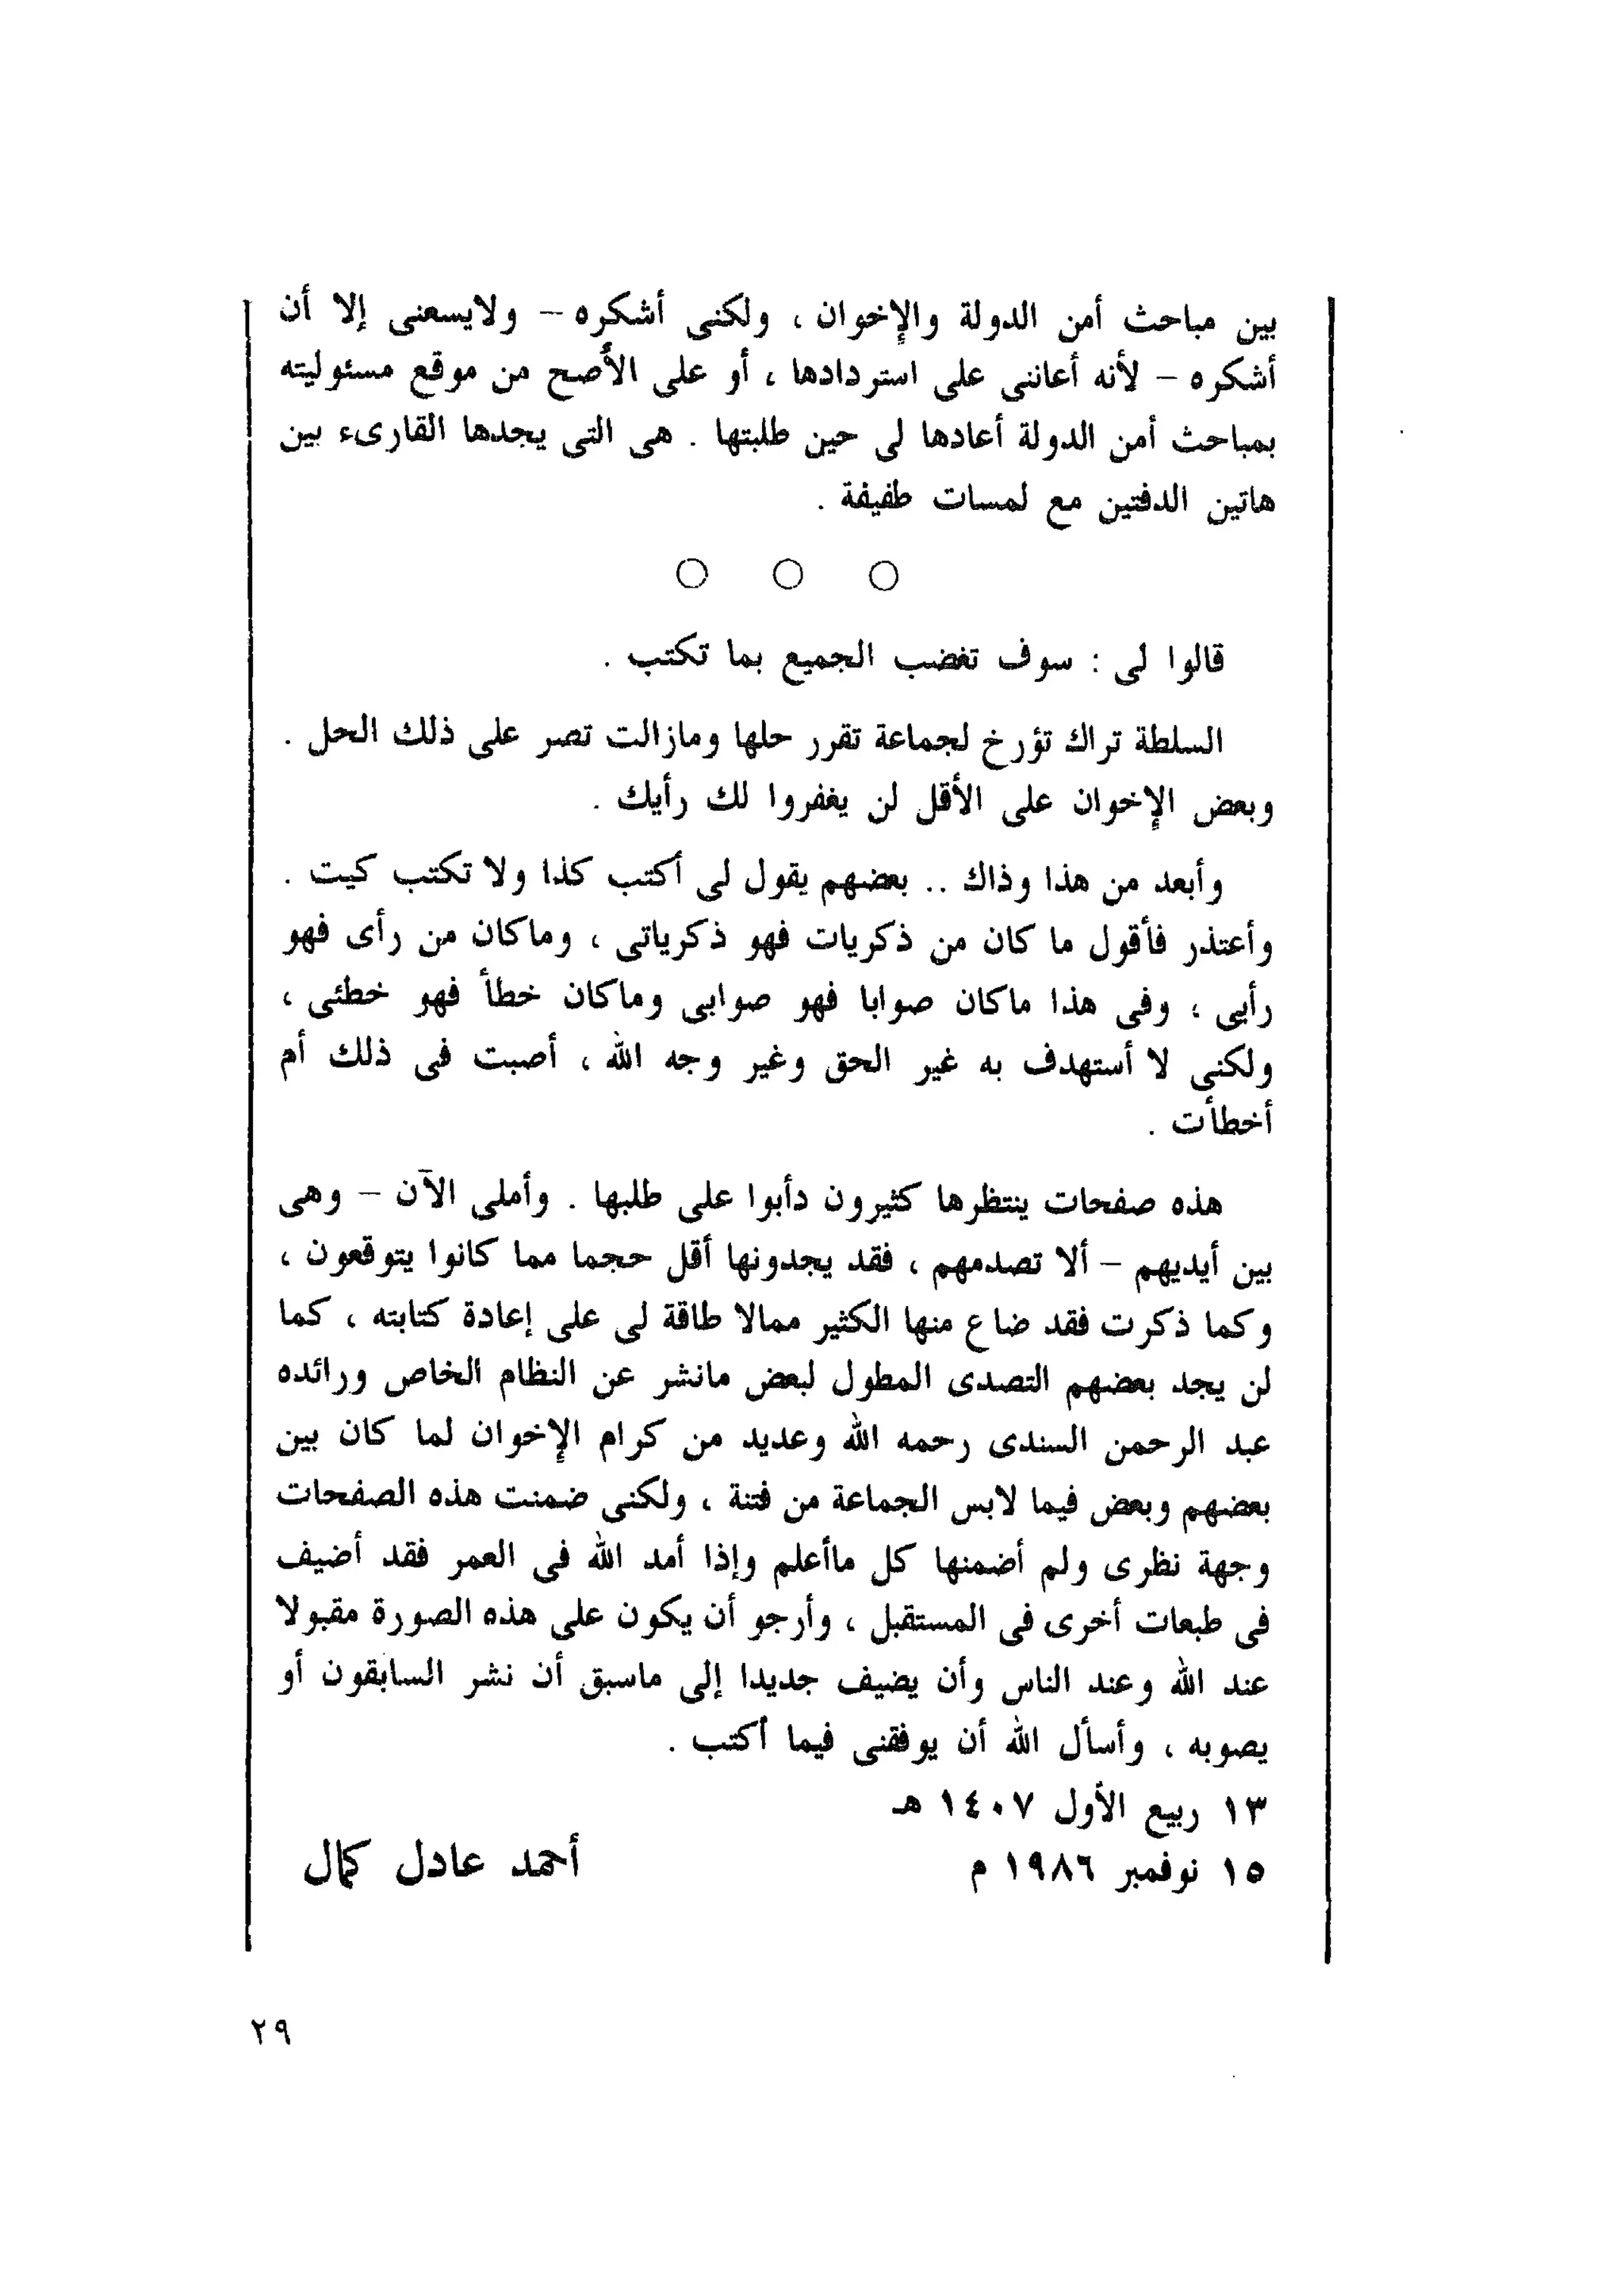 بين مباحث أمن الدولة والإخوان ، ولكنى أشكره – ولايسعنى إلا أن
أشكره – لأنه أعاننى على استردادها ، أو على الأصح من موقع مسئوليته
بمباحث أمن الدولة أعادها لى حين طلبتها . هى التى يجدها القارىء بين
هاتين الدفتين مع لمسات طفيفة .
○ ○ ○
قالوا لى : سوف تغضب الجميع بما تكتب .
السلطة تراك تؤرخ لجماعة تقرر حلها ومازالت تصر على ذلك الحل .
وبعض الإخوان على الأقل لن يغفروا لك رأيك .
وأبعد من هذا وذاك .. بعضهم يقول لى أكتب كذا ولا تكتب كيت .
وأعتذر فأقول ما كان من ذكريات فهو ذكرياتى ، وماكان من رأى فهو
رأيى ، وفى هذا ماكان صوابا فهو صوابى وماكان خطأ فهو خطئى ،
ولكنى لا أستهدف به غير الحق وغير وجه الله ، أصبت فى ذلك أم
أخطأت .
هذه صفحات ينتظرها كثيرون دأبوا على طلبها . وأملى الآن – وهى
بين أيديهم – ألا تصدمهم ، فقد يجدونها أقل حجما مما كانوا يتوقعون ،
وكما ذكرت فقد ضاع منها الكثير ممالا طاقة لى على إعادة كتابته ، كما
لن يجد بعضهم التصدى المطول لبعض مانشر عن النظام الخاص ورائده
عبد الرحمن السندى رحمه الله وعديد من كرام الإخوان لما كان بين
بعضهم وبعض فيما لابس الجماعة من فتنة ، ولكنى ضمنت هذه الصفحات
وجهة نظرى ولم أضمنها كل ماأعلم وإذا أمد الله فى العمر فقد أضيف
فى طبعات أخرى فى المستقبل ، وأرجو أن يكون على هذه الصورة مقبولا
عند الله وعند الناس وأن يضيف جديدا إلى ماسبق أن نشر السابقون أو
يصوبه ، وأسأل الله أن يوفقنى فيما أكتب .
١٣ ربيع الأول ١٤٠٧ هـ
١٥ نوفمبر ١٩٨٦ م
أحمد عادل كمال
٢٩